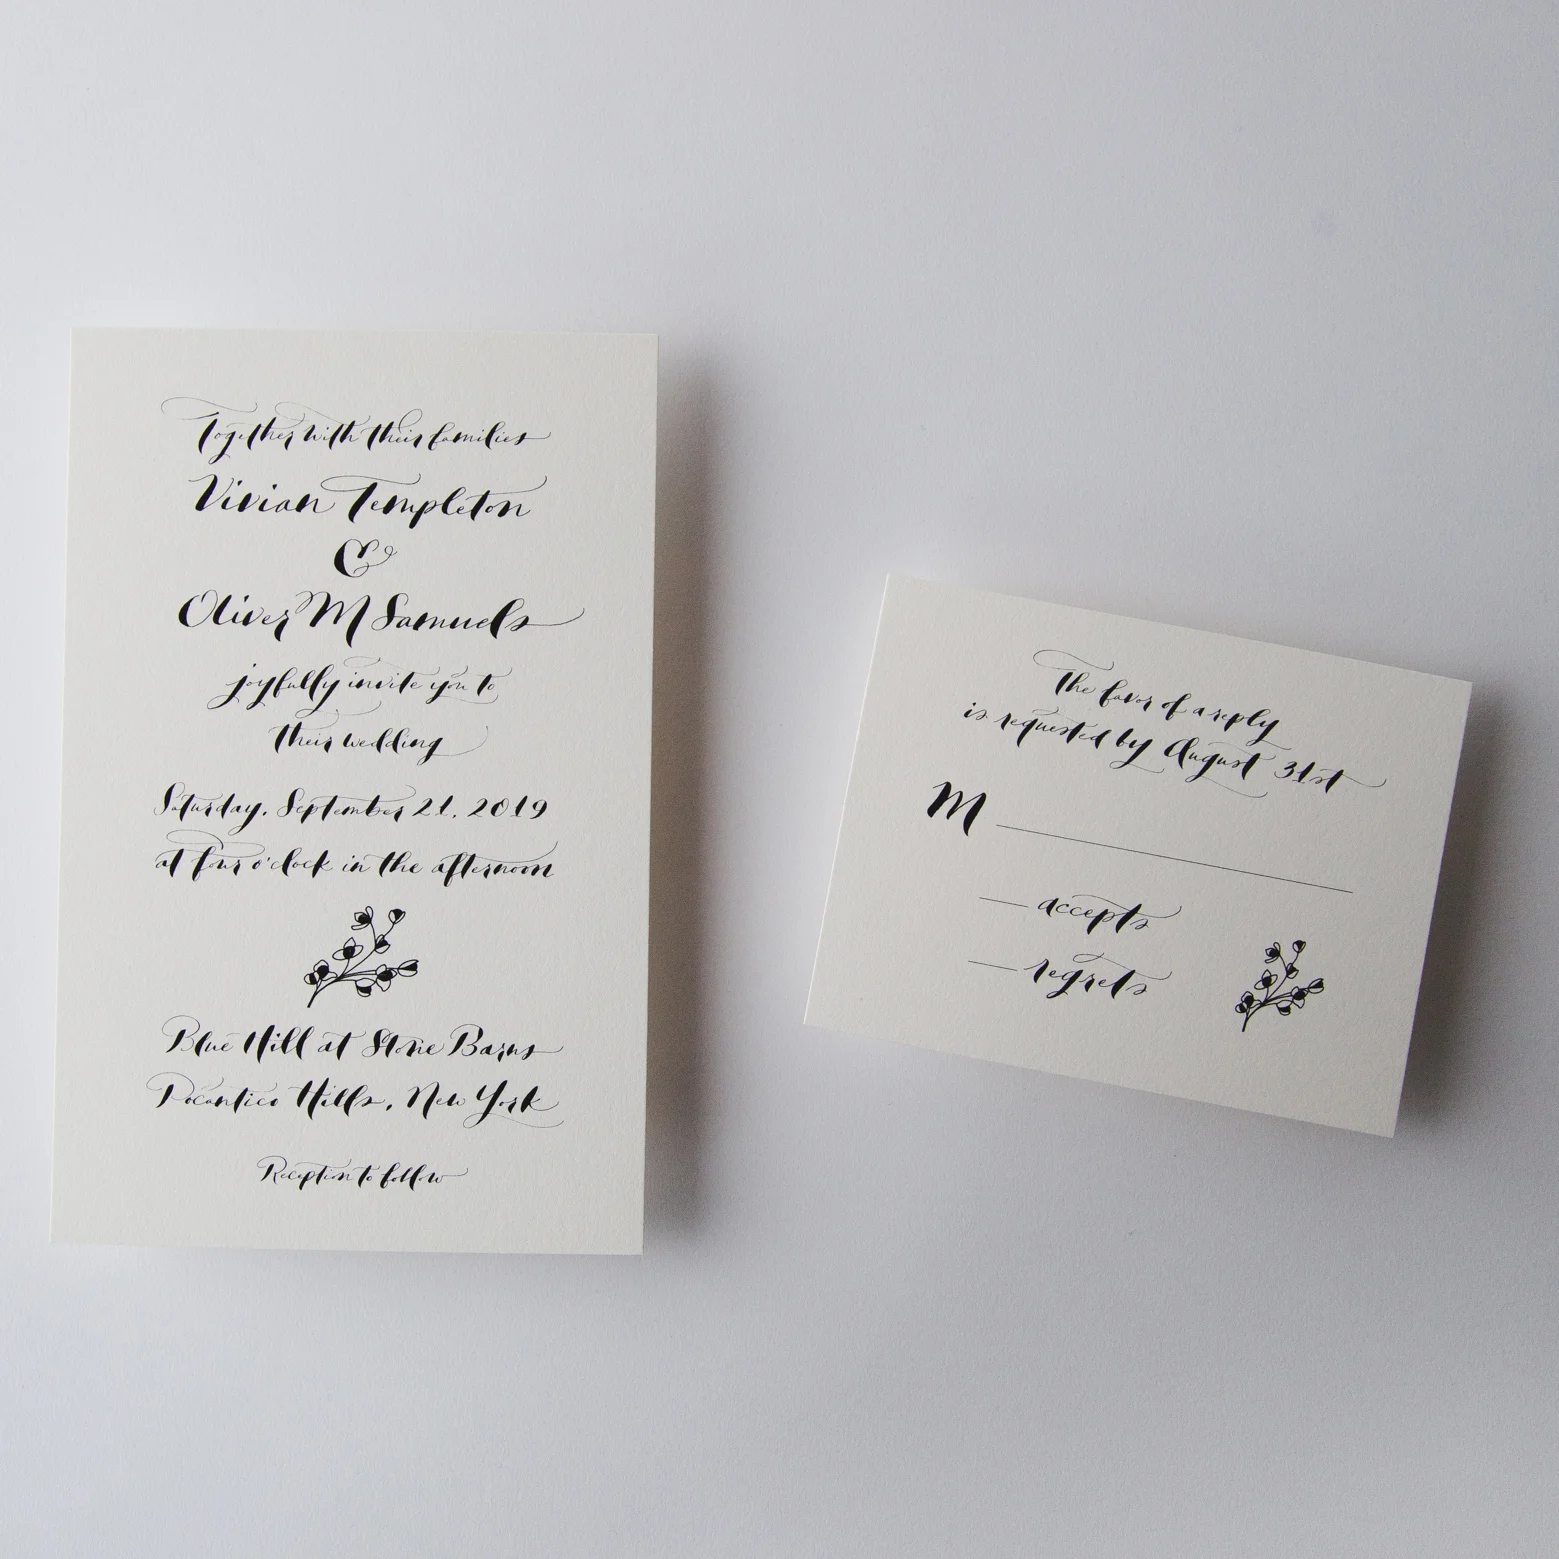 Together with their families
Vivian Templeton
&
Oliver M Samuels
joyfully invite you to
their wedding
Saturday, September 21, 2019
at four o'clock in the afternoon
Blue Hill at Stone Barns
Pocantico Hills, New York
Reception to follow
The favor of a reply
is requested by August 31st
M
accepts
regrets